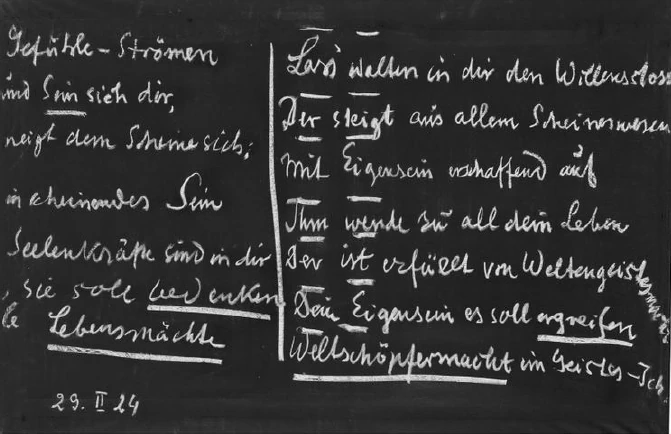 Gefühle-Strömen
und Sein sich dir,
neigt dem Scheine sich;
in scheinendes Sein
Seelenkräfte sind in dir
, sie soll bedenken
Lebensmächte
29. II 24
Lass walten in dir den Willensstoss
Der steigt aus allem Scheineswesen
Mit Eigensein erschaffend auf
Ihm wende zu all dein Leben
Der ist erfüllt von Weltengeistesmacht
Dein Eigensein es soll ergreifen
Weltschöpfermacht im Geistes-Ich.